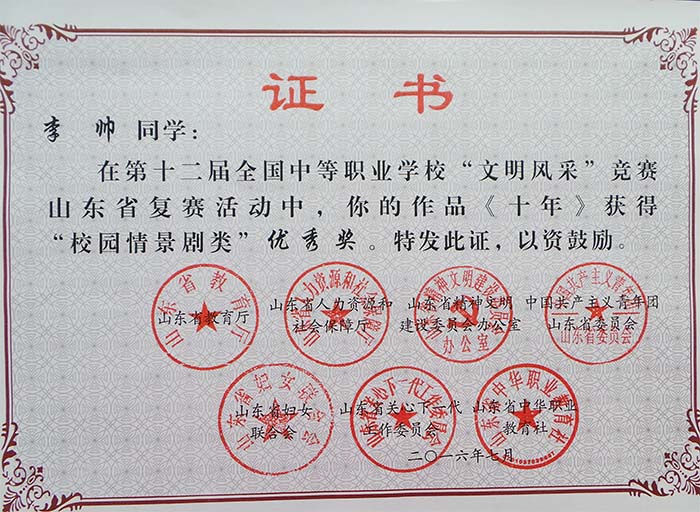 证 书
李 帅 同学：
在第十二届全国中等职业学校“文明风采”竞赛
山东省复赛活动中，你的作品《十年》获得
“校园情景剧类”优秀奖。特发此证，以资鼓励。
山东省教育厅
山东省人力资源和
社会保障厅
山东省精神文明
建设委员会办公室
中国共产主义青年团
山东省委员会
山东省妇女
联合会
山东省关心下一代
工作委员会
山东省中华职业
教育社
二〇一六年七月